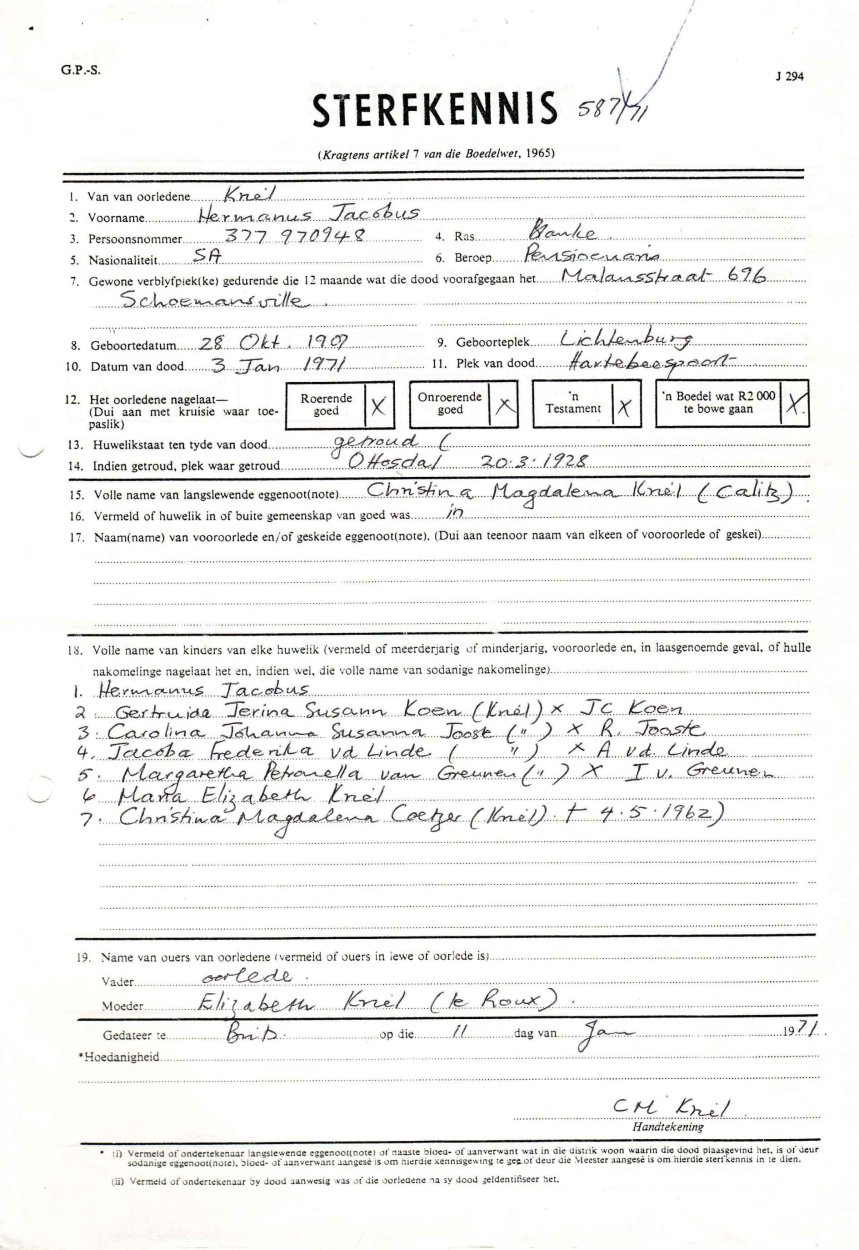 G.P.-S.
J 294
STERFKENNIS 587/71
(Kragtens artikel 7 van die Boedelwet, 1965)
1. Van van oorledene Kriel
2. Voorname Hermanus Jacobus
3. Persoonsnommer 377 970948 4. Ras Blanke
5. Nasionaliteit SA 6. Beroep Pensioenaris
7. Gewone verblyfplek(ke) gedurende die 12 maande wat die dood voorafgegaan het Malansstraat 696
Schoemansville
8. Geboortedatum 28 Okt. 1907 9. Geboorteplek Lichtenburg
10. Datum van dood 3 Jan 1971 11. Plek van dood Hartebeespoort
12. Het oorledene nagelaat— (Dui aan met kruisie waar toepaslik) Roerende goed X Onroerende goed X 'n Testament X 'n Boedel wat R2 000 te bowe gaan X
13. Huwelikstaat ten tyde van dood getroud (
14. Indien getroud, plek waar getroud Ottosdal 20.3.1928
15. Volle name van langslewende eggenoot(note) Christina Magdalena Kriel (Calitz)
16. Vermeld of huwelik in of buite gemeenskap van goed was in
17. Naam(name) van vooroorlede en/of geskeide eggenoot(note). (Dui aan teenoor naam van elkeen of vooroorlede of geskei)
18. Volle name van kinders van elke huwelik (vermeld of meerderjarig of minderjarig, vooroorlede en, in laasgenoemde geval, of hulle
nakomelinge nagelaat het en, indien wel, die volle name van sodanige nakomelinge)
1. Hermanus Jacobus
2. Gertruida Jerina Susann Koen (Kriel) x JC Koen
3. Carolina Johanna Susanna Jooste (") x R. Jooste
4. Jacoba Frederika vd Linde ( " ) x A vd. Linde
5. Margaretha Petronella van Greunen (") x I v. Greunen
6 Maria Elizabeth Kriel
7. Christina Magdalena Coetzer (Kriel). † 4.5.1962)
19. Name van ouers van oorledene (vermeld of ouers in lewe of oorlede is)
Vader oorlede.
Moeder Elizabeth Kriel (le Roux).
Gedateer te Brits op die 11 dag van Jan 1971.
*Hoedanigheid
CM Kriel
Handtekening
* (i) Vermeld of ondertekenaar langslewende eggenoot(note) of naaste bloed- of aanverwant wat in die distrik woon waarin die dood plaasgevind het, is of deur
sodanige eggenoot(note), bloed- of aanverwant aangesê is om hierdie kennisgewing te gee of deur die Meester aangesê is om hierdie sterfkennis in te dien.
(ii) Vermeld of ondertekenaar by dood aanwesig was of die oorledene na sy dood geïdentifiseer het.